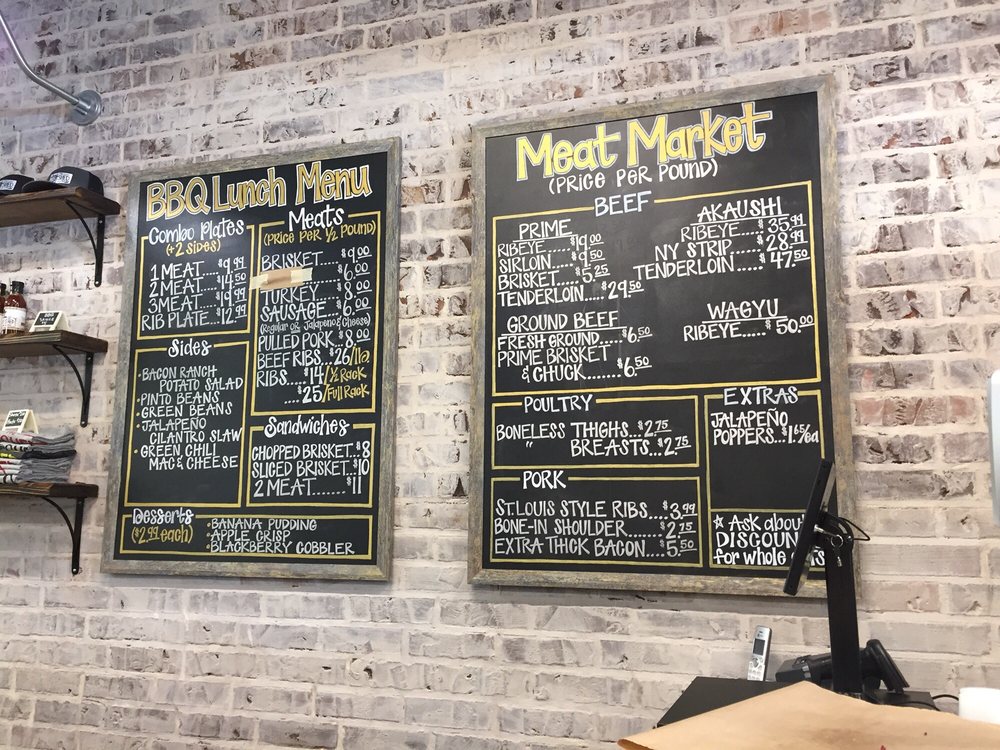 BBQ Lunch Menu
Combo Plates
(+2 SIDES)
1 MEAT.....$9.99
2 MEAT.....$14.50
3 MEAT....$19.99
RIB PLATE...$12.99
Sides
• BACON RANCH
POTATO SALAD
• PINTO BEANS
• GREEN BEANS
• JALAPEÑO
CILANTRO SLAW
• GREEN CHILI
MAC & CHEESE
Meats
(PRICE PER 1/2 POUND)
BRISKET....$9.00
$6.00
TURKEY....$8.00
SAUSAGE...$6.00
(Regular OR Jalapeño & Cheese)
PULLED PORK..$8.00
BEEF RIBS...$26/lb
RIBS.....$14/1/2 Rack
....$25/Full Rack
Sandwiches
CHOPPED BRISKET..$8
SLICED BRISKET..$10
2 MEAT.......$11
Desserts
($2.99 each)
• BANANA PUDDING
• APPLE CRISP
• BLACKBERRY COBBLER
Meat Market
(PRICE PER POUND)
BEEF
PRIME
RIBEYE....$19.00
SIRLOIN....$9.50
BRISKET....$5.25
TENDERLOIN....$29.50
GROUND BEEF
FRESH GROUND.....$6.50
PRIME BRISKET
& CHUCK.......$6.50
AKAUSHI
RIBEYE....$35.99
NY STRIP....$28.99
TENDERLOIN.....$47.50
WAGYU
RIBEYE....$50.00
POULTRY
BONELESS THIGHS...$2.75
" BREASTS...$2.75
PORK
ST. LOUIS STYLE RIBS....$3.99
BONE-IN SHOULDER.......$2.75
EXTRA THICK BACON....$5.50
EXTRAS
JALAPEÑO
POPPERS...$1.65/ea
☆ ASK about
DISCOUN
for whole